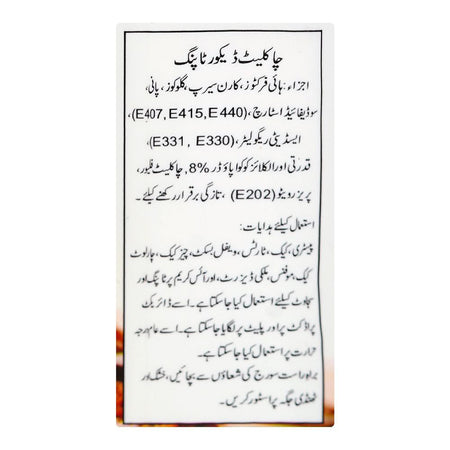 چاکلیٹ ڈیکور ٹاپنگ
اجزاء: ہائی فرکٹوز، کارن سیرپ، گلوکوز، پانی،
سوڈیفائیڈ اسٹارچ، (E407, E415, E440)،
ایسڈیٹی ریگولیٹر، (E331, E330)،
قدرتی اور الکلائز کوکو پاؤڈر 8%، چاکلیٹ فلیور،
پریزرویٹو (E202)، تازگی برقرار رکھنے کیلئے۔
استعمال کیلئے ہدایات:
پیسٹری، کیک، ٹارٹس، ویفل بسکٹ، چیز کیک، چارلوٹ
کیک، موفنس، ملکی ڈیزرٹ، اور آئس کریم پر ٹاپنگ اور
سجاوٹ کیلئے استعمال کیا جا سکتا ہے۔ اسے ڈائریکٹ
پراڈکٹ پر اور پلیٹ پر لگایا جا سکتا ہے۔ اسے عام درجہ
حرارت پر استعمال کیا جا سکتا ہے۔
براہ راست سورج کی شعاؤں سے بچائیں، خشک اور
ٹھنڈی جگہ پر اسٹور کریں۔